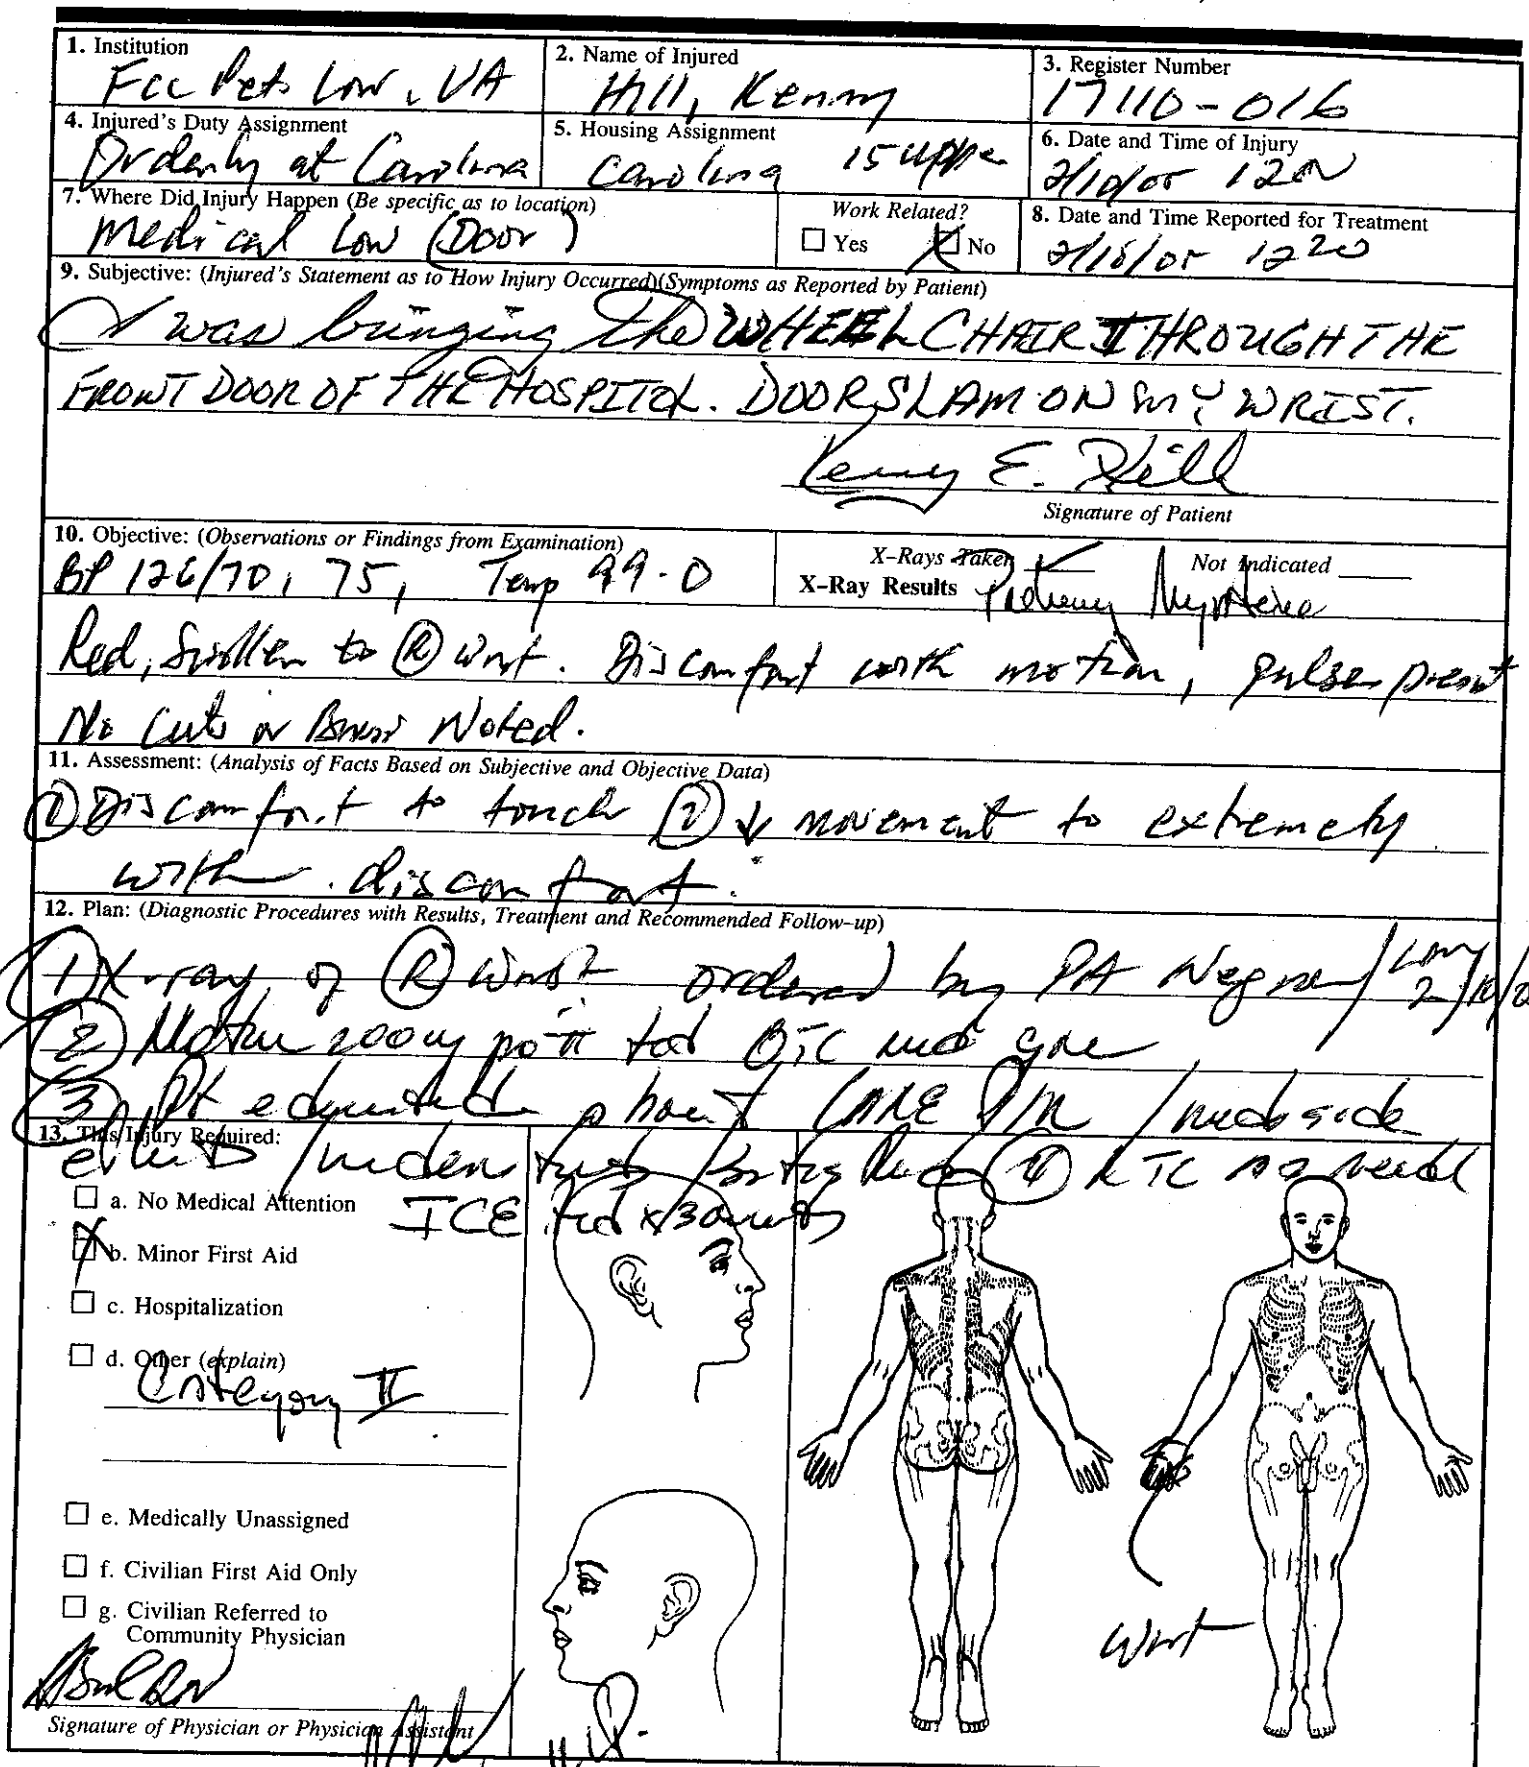 1. Institution
Fcc Pets Low, VA
2. Name of Injured
Hill, Kenny
3. Register Number
17110-016
4. Injured's Duty Assignment
Orderly at Carolina
5. Housing Assignment
Carolina 15 upper
6. Date and Time of Injury
2/10/05 12
7. Where Did Injury Happen (Be specific as to location)
Medical Low (Door)
Work Related?
Yes No
8. Date and Time Reported for Treatment
1220
9. Subjective: (Injured's Statement as to How Injury Occurred)(Symptoms as Reported by Patient)
I was bringing the WHEEL CHAIR THROUGH THE
FRONT DOOR OF THE HOSPITOL. DOOR SLAM ON MY WRIST.
Kenny E. Hill
Signature of Patient
10. Objective: (Observations or Findings from Examination)
BP 126/70, 75, Temp 99.0
X-Rays Taken Not Indicated
X-Ray Results
Red, Swollen to R Wrist. Discomfort with motion, pulse present
No Cuts or Noted.
11. Assessment: (Analysis of Facts Based on Subjective and Objective Data)
1 Discomfort to touch 2 ↓ movement to extremety
with discomfort.
12. Plan: (Diagnostic Procedures with Results, Treatment and Recommended Follow-up)
1) X-ray of R Wrist ordered by PA
2) 200 po tid OTC
3) Pt educated about
13. This Injury Required:
4 RTC as need
a. No Medical Attention
ICE tid x 30
b. Minor First Aid
c. Hospitalization
d. Other (explain)
Category II
e. Medically Unassigned
f. Civilian First Aid Only
g. Civilian Referred to
Community Physician
Wrist
Signature of Physician or Physician Assistant